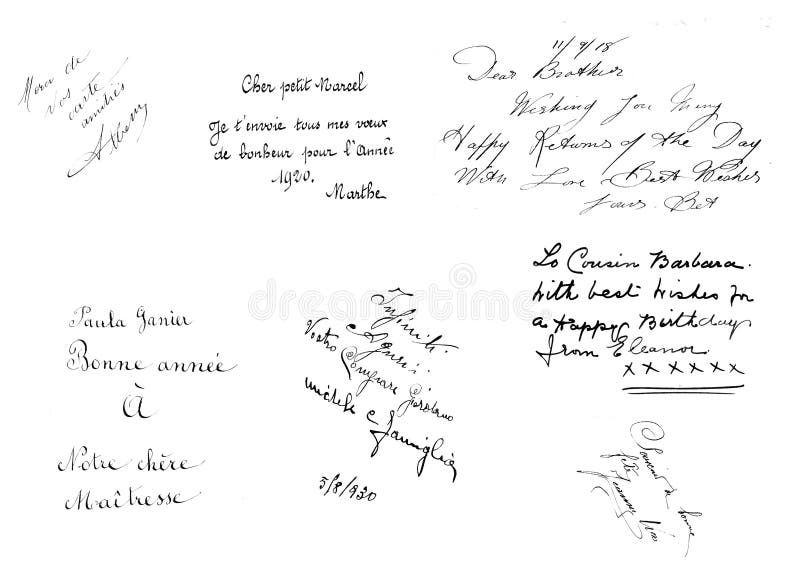 Merci de
vos
carte
amitiés
Cher petit Marcel
Je t'envoie tous mes vœux
de bonheur pour l'Année
1920.
Marthe
11/9/18
Dear Brother
Wishing You Many
Happy Returns of the Day
With Love Best Wishes
Yours. Bet
To Cousin Barbara.
With best wishes for
a Happy Birthday
from Eleanor.
x x x x x x
Paula Ganier
Bonne année
À
Notre chère
Maîtresse
Infiniti
Auguri
Vostro Compare Girolamo
Michele e famiglia
5/8/930
Souvenir de bonne
fête
dreamstime